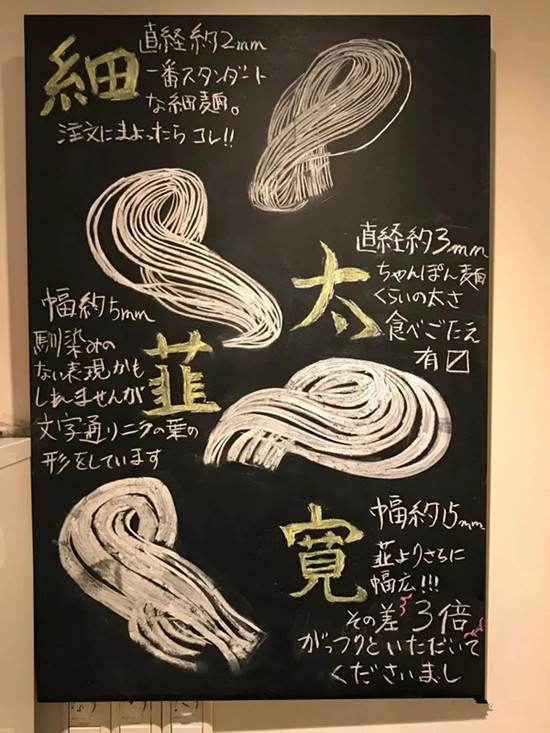 細
直経約2mm
一番スタンダート
な細麺。
注文にまよったら コレ!!
太
直経約3mm
ちゃんぽん麺
くらいの太さ
食べごたえ
有〼
韮
幅約5mm
馴染みの
ない表現かも
しれませんが
文字通りニラの葉の
形をしています
寛
幅約15mm
韮よりさらに
幅広!!!
その差 3倍
がっつりといただいて
くださいまし